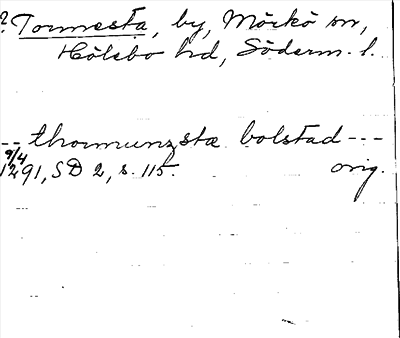 ? Tormesta, by, Mörkö sn,
Hölebo hd, Söderm. l.
-- thormunzsta bolstad ---
9/4
1291, SD 2, s. 115. orig.